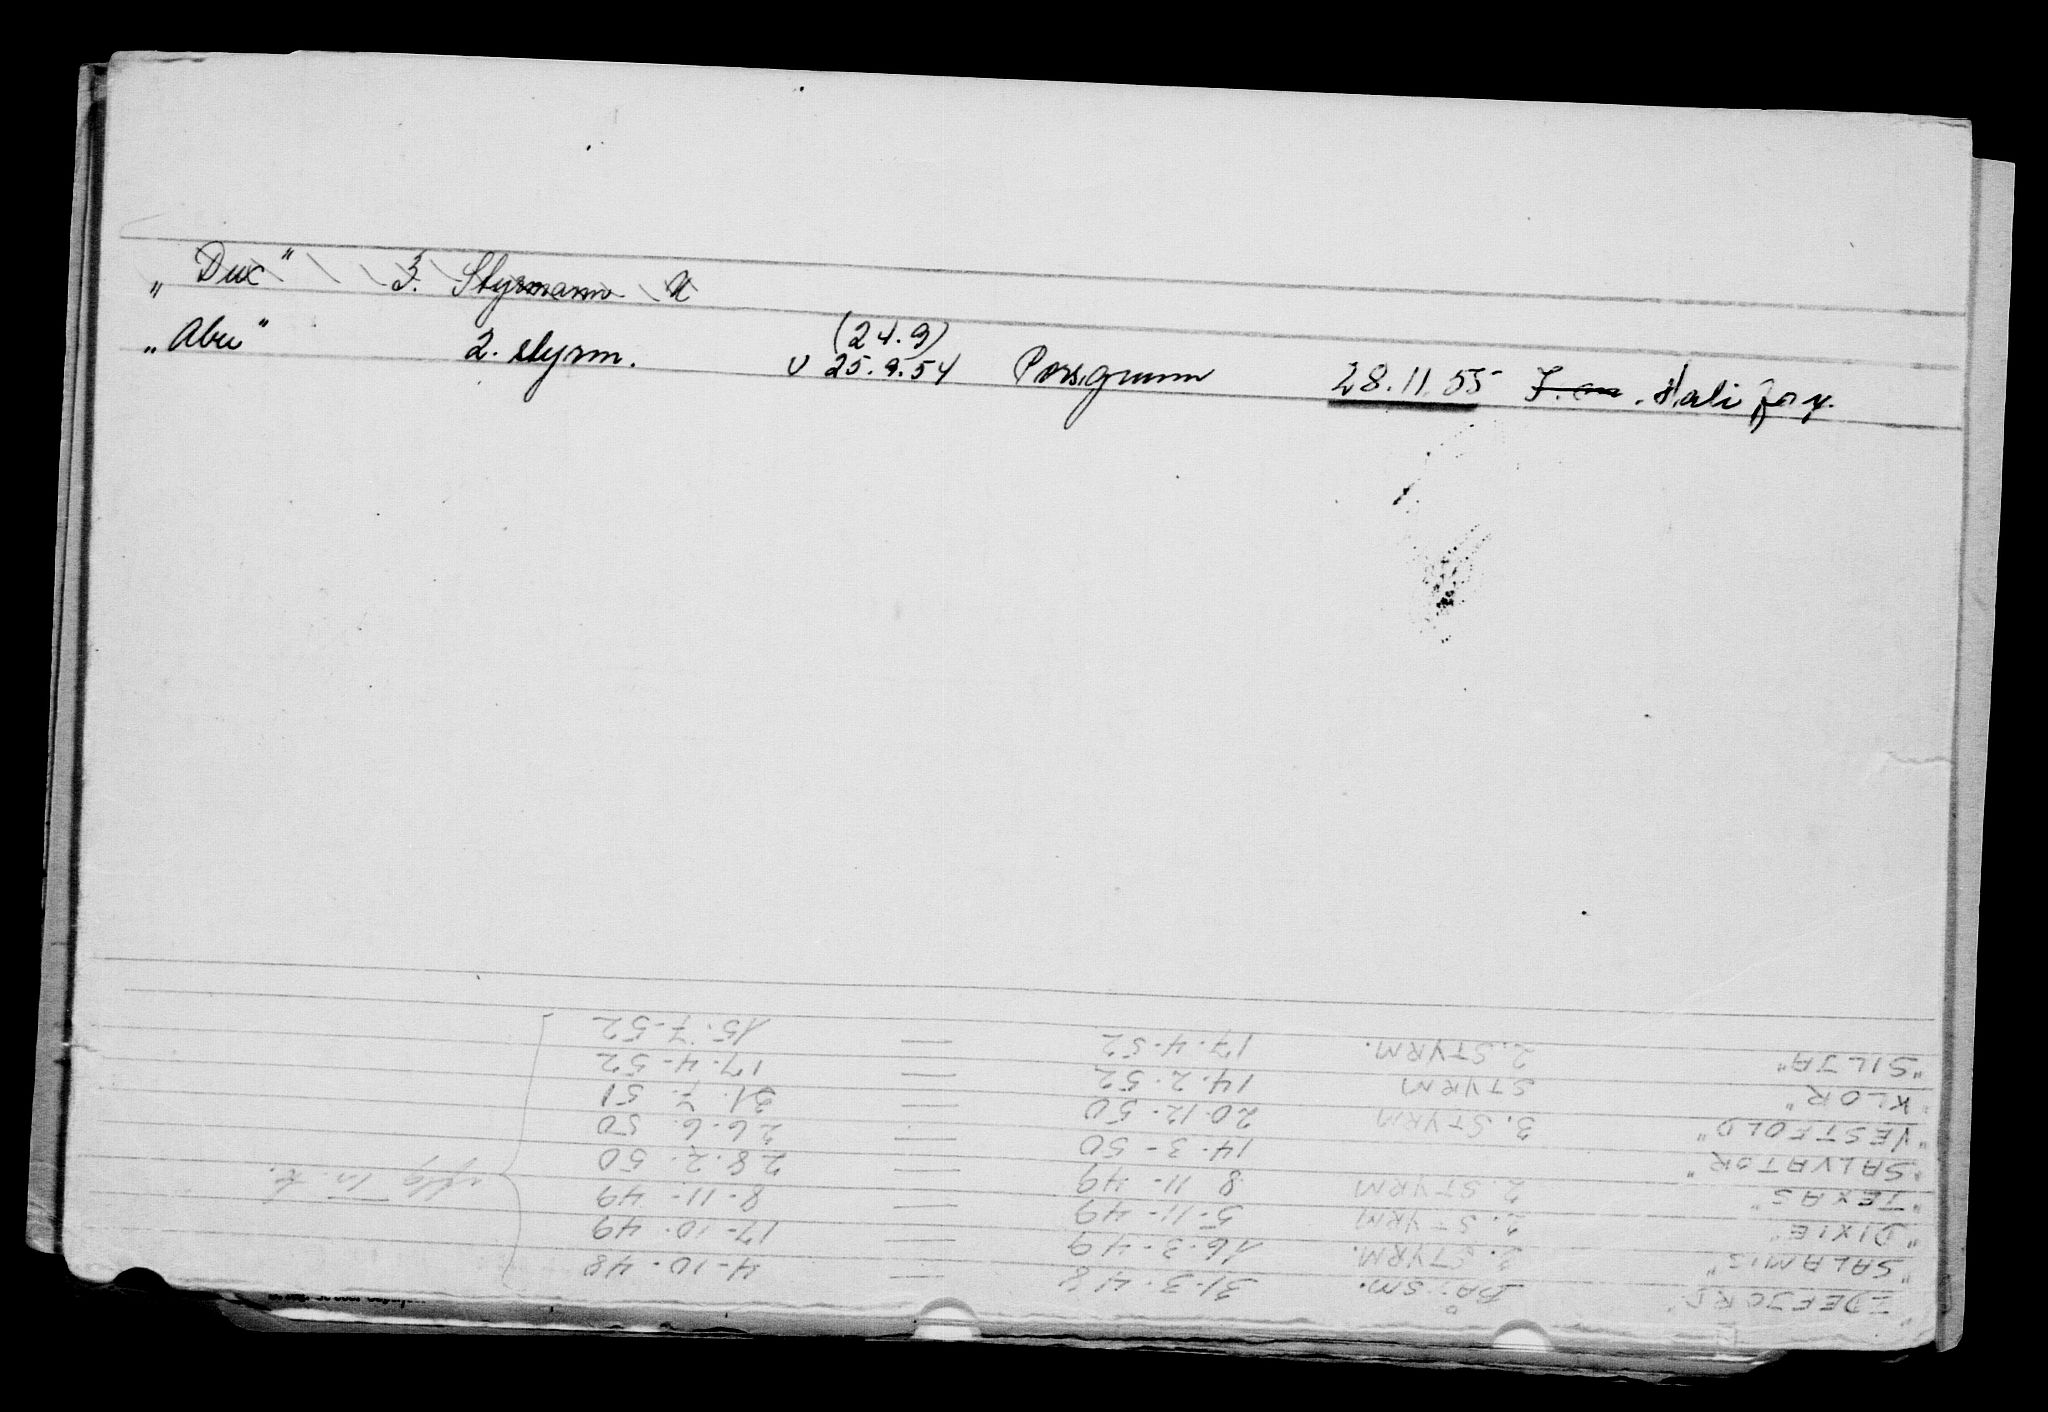 „Dux" 3. Styrmann U
(24.9)
„Abu" 2. styrm. U 25.9.54 Porsgrunn 28.11.55 Halifax.
"IDEFJORD" BÅ:SM. 31.3.48 — 4-10-48
"SALAMIS" 3. STYRM. 16.3-49 — 17-10.49
"DIXIE" 2. STYRM 5-11-49 — 8-11-49
"TEXAS" 2. STYRM 8 11-49 — 28.2.50
"SALVATOR" 14.3-50 — 26.6.50
"VESTFOLD" 3. STYRM 20.12.50 — 31.7.51
"KLOR" STYRM 14.2.52 — 17-4-52
"SILJA" 2. STYRM. 17.4-52 — 15.7-52